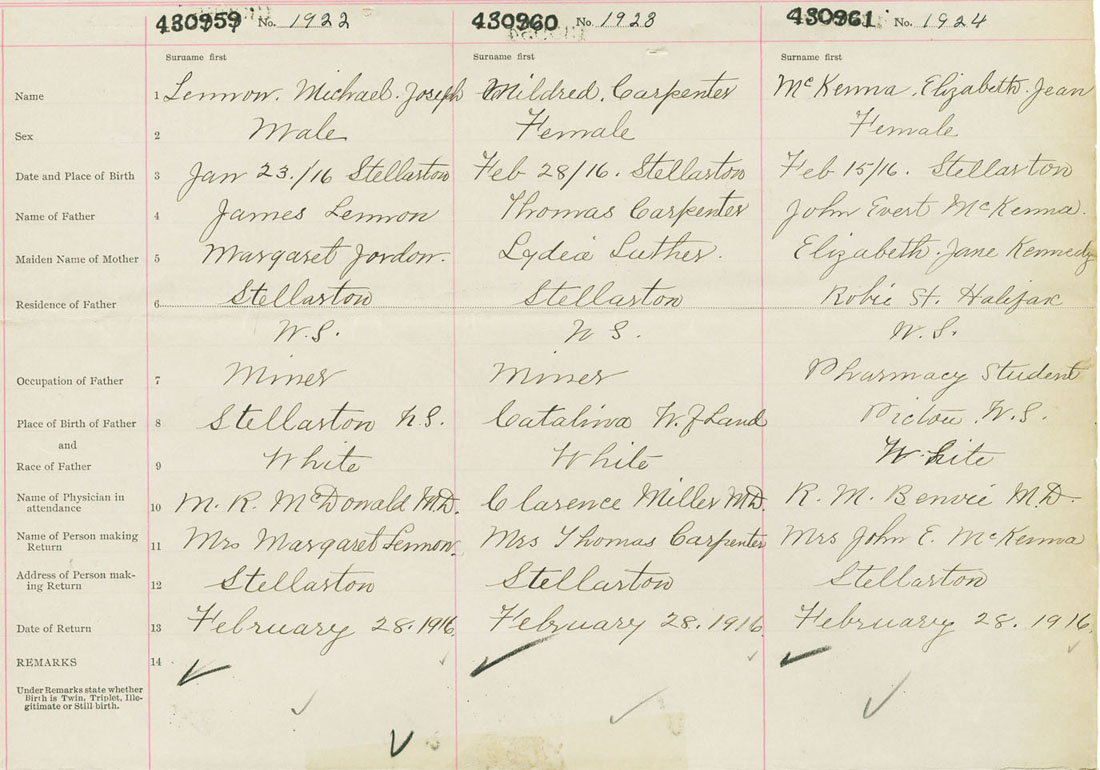 430959 No. 1922 430960 No. 1923 430961 No. 1924
Surname first Surname first Surname first
Name 1 Lennon. Michael. Joseph Mildred. Carpenter McKenna. Elizabeth. Jean
Sex 2 Male Female Female
Date and Place of Birth 3 Jan 23./16 Stellarton Feb 28/16. Stellarton Feb 15/16. Stellarton
Name of Father 4 James Lennon Thomas Carpenter John Evert McKenna.
Maiden Name of Mother 5 Margaret Jordon. Lydia Luther. Elizabeth. Jane Kennedy
Residence of Father 6 Stellarton Stellarton Robie St. Halifax
N.S. N S. N.S.
Occupation of Father 7 Miner Miner Pharmacy Student
Place of Birth of Father 8 Stellarton N.S. Catalina N.F Land Pictou. N.S.
and
Race of Father 9 White White White
Name of Physician in
attendance 10 M. R. McDonald M.D. Clarence Miller M.D. R. M. Benvie M.D.
Name of Person making
Return 11 Mrs Margaret Lennon. Mrs Thomas Carpenter Mrs John E. McKenna
Address of Person mak-
ing Return 12 Stellarton Stellarton Stellarton
Date of Return 13 February 28. 1916 February 28. 1916. February 28. 1916
REMARKS 14
Under Remarks state whether
Birth is Twin, Triplet, Ille-
gitimate or Still birth.